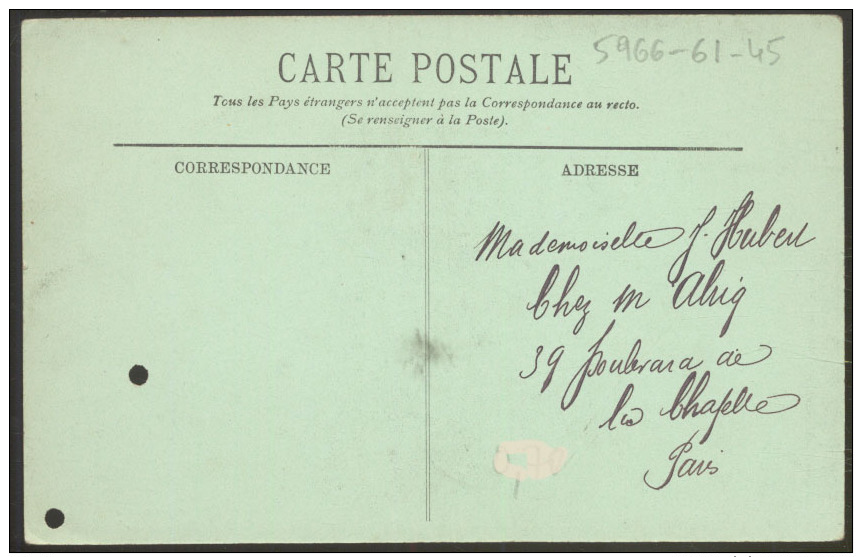 5966-61-45
CARTE POSTALE
Tous les Pays étrangers n'acceptent pas la Correspondance au recto.
(Se renseigner à la Poste).
CORRESPONDANCE
ADRESSE
Mademoiselle J. Hubert
Chez m
39 Boulevard de
la Chapelle
Paris